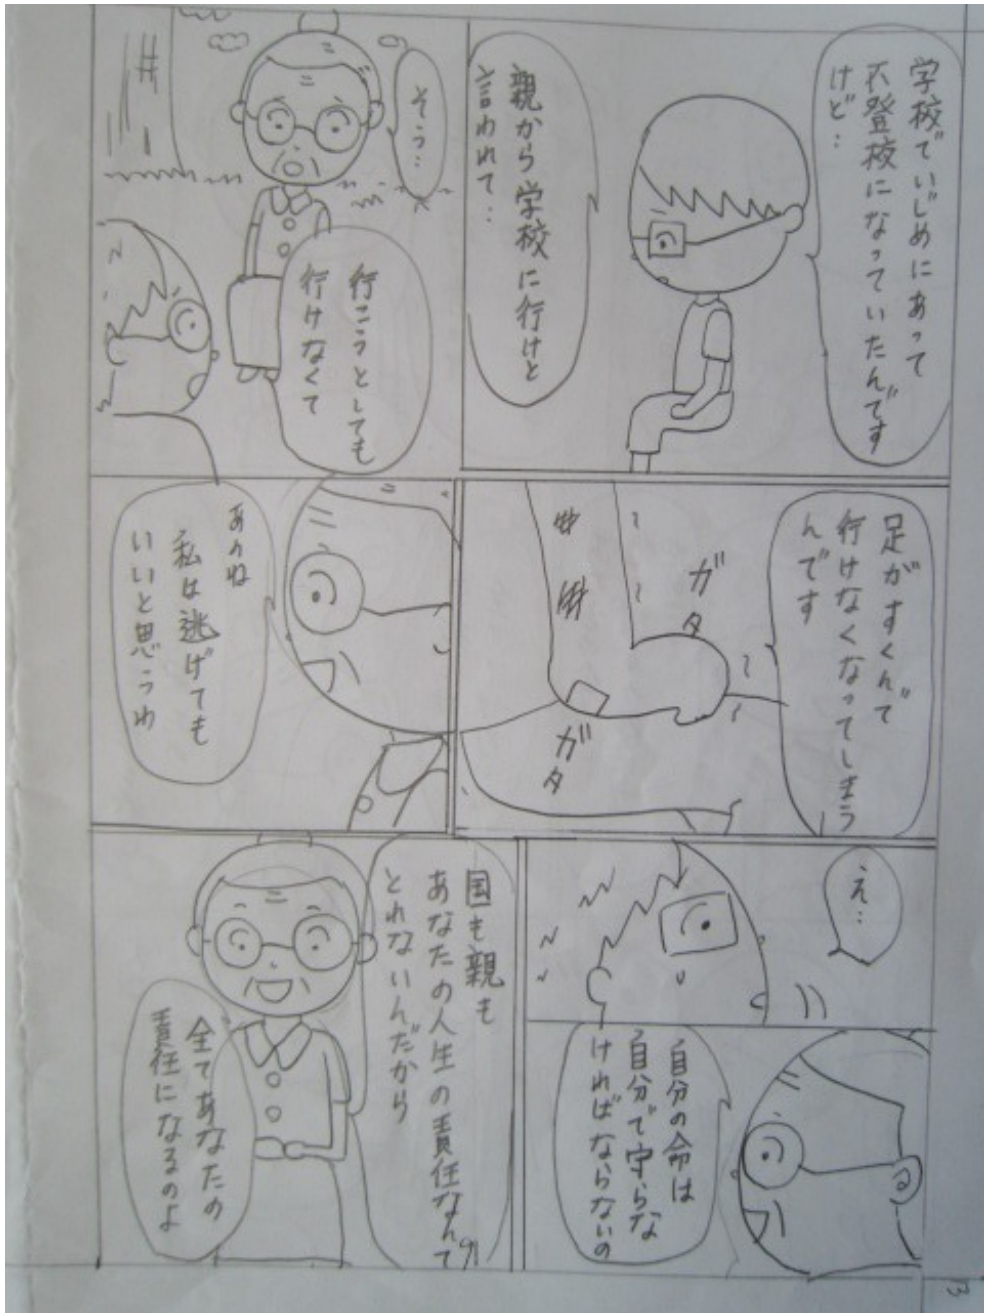 学校でいじめにあって
不登校になっていたんです
けど…
親から学校に行けと
言われて…
そう…
行こうとしても
行けなくて
足がすくんで
行けなくなってしまう
んです
ガタ
ガタ
あのね
私は逃げても
いいと思うわ
え…
自分の命は
自分で守らな
ければならないの
国も親も
あなたの人生の責任なんて
とれないんだから
全てあなたの
責任になるのよ
13